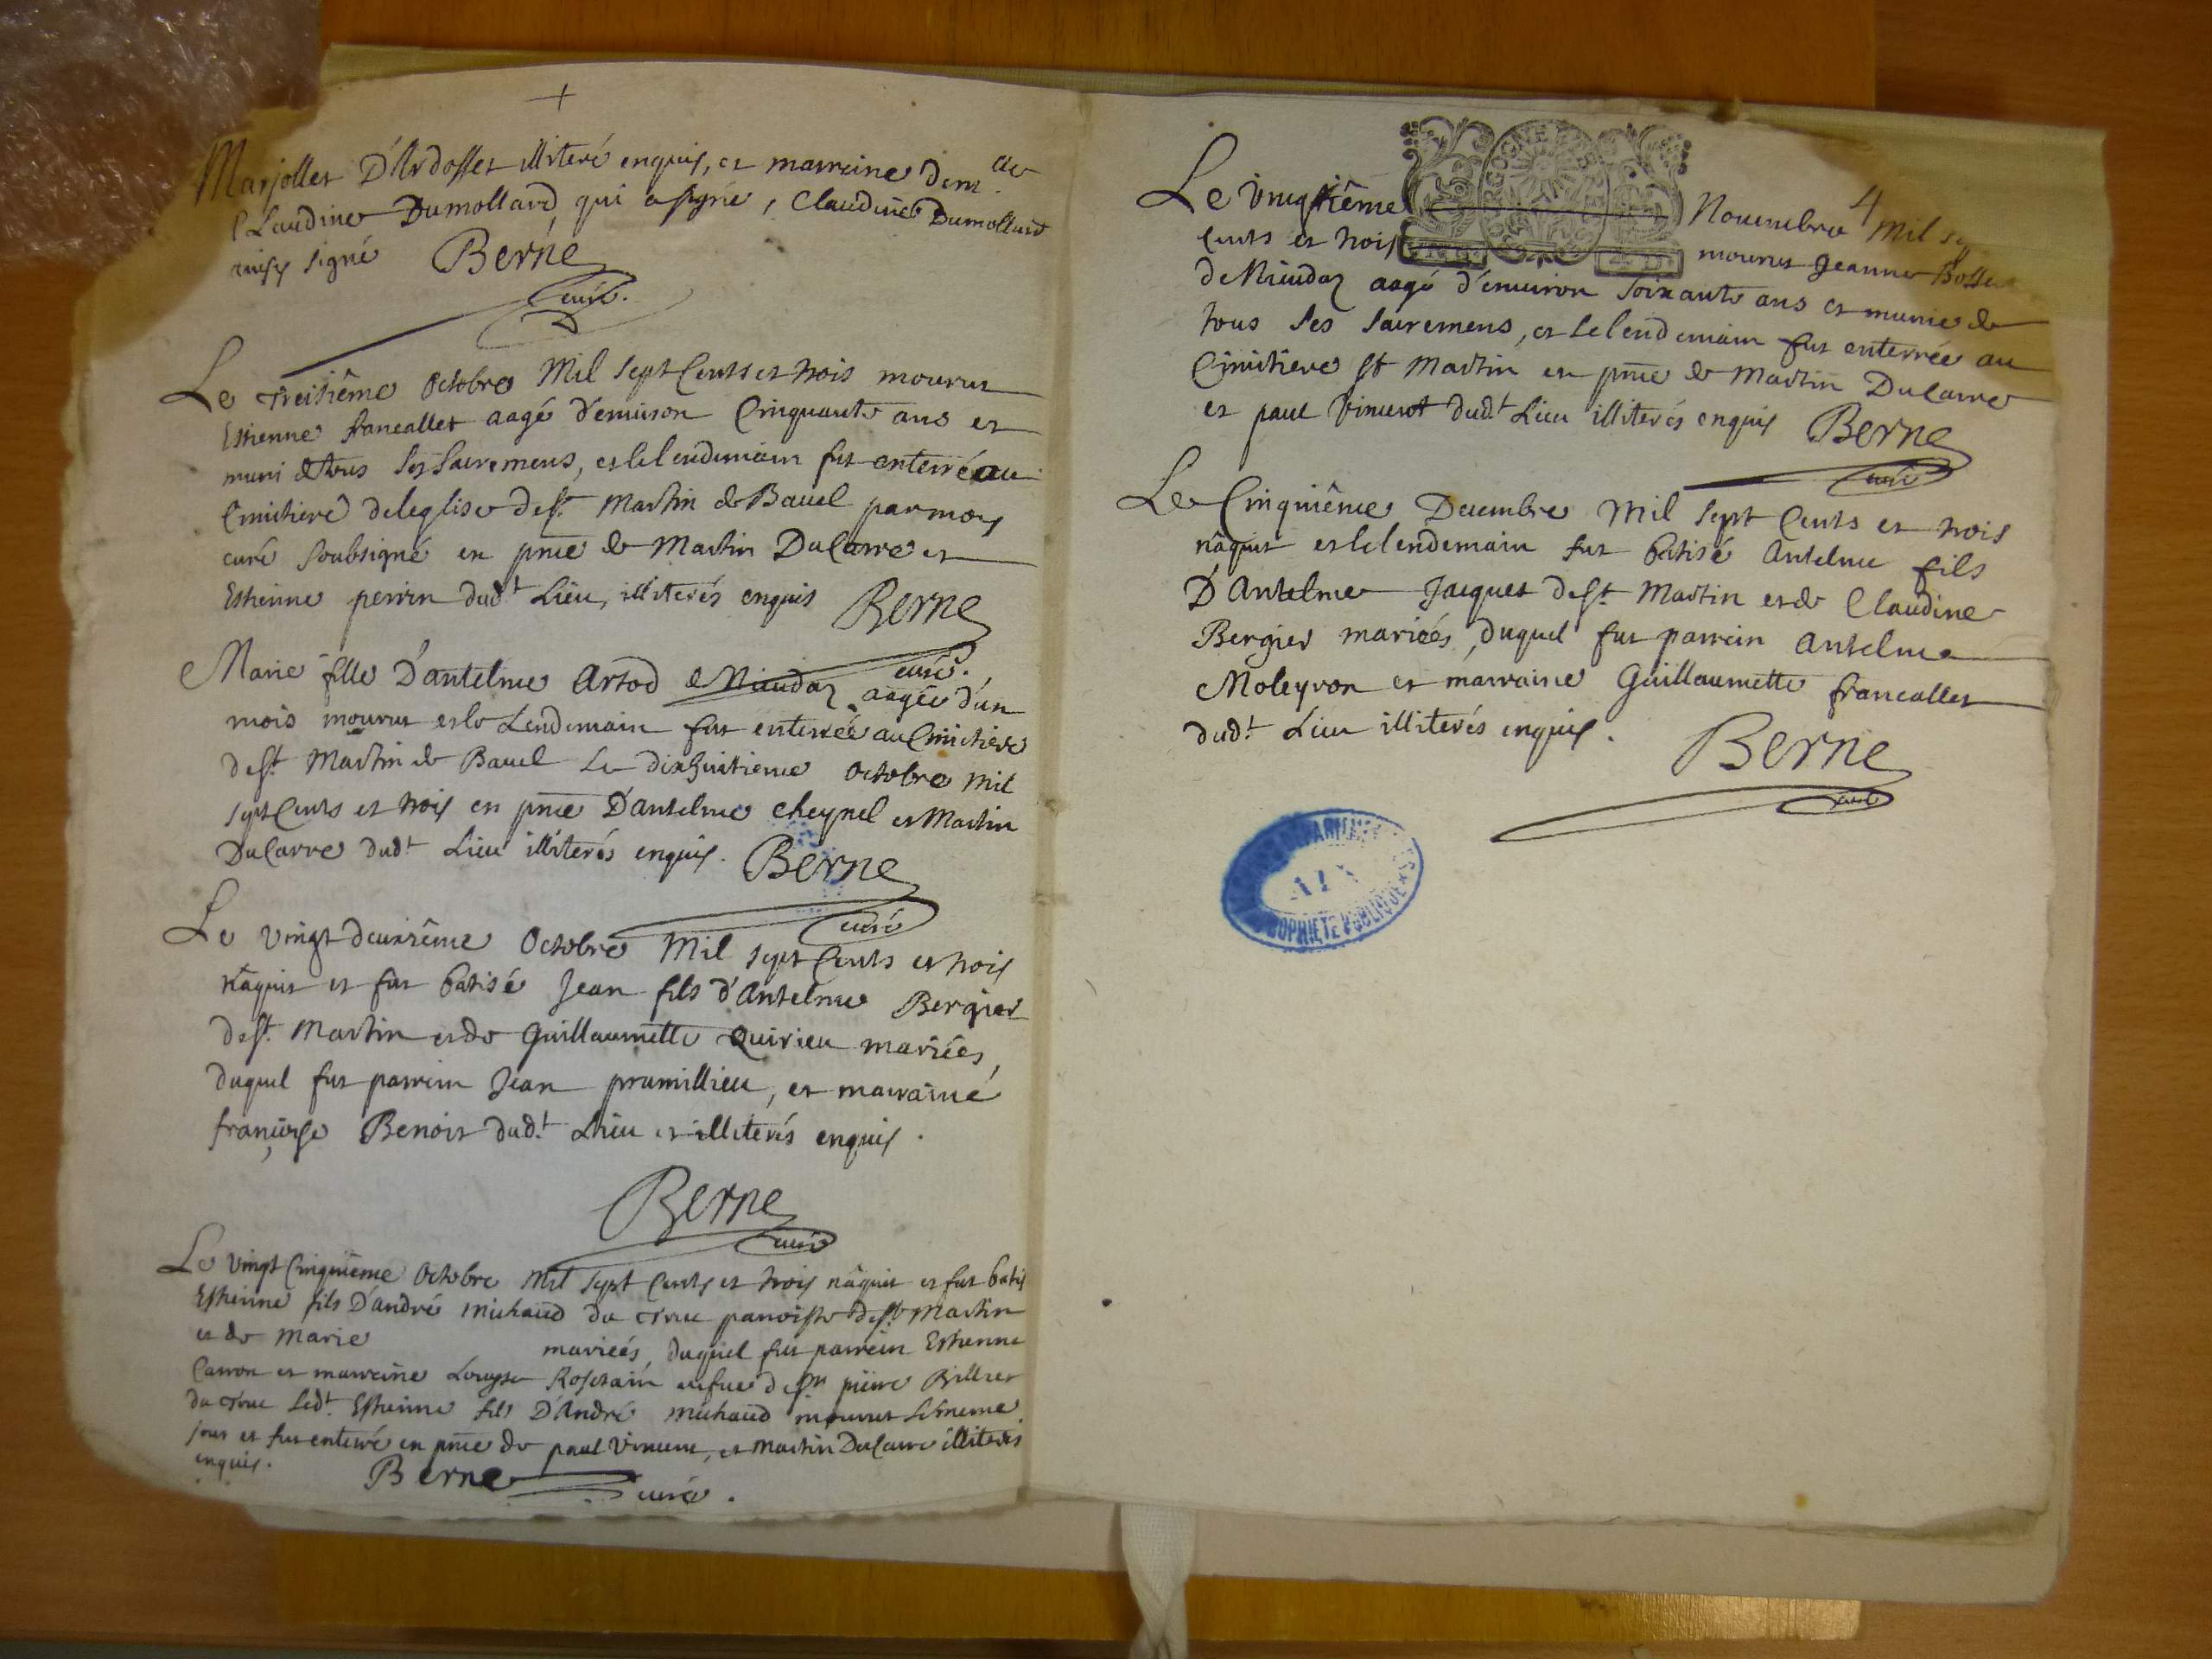 Marjollet D'Ardosset illiteré enquis, et marreine dem.lle
Claudine Dumollard qui a signé, Claudine Dumollard
ainsy signé Berne
curé.
Le treisiême octobre Mil sept Cents et trois mourut
Estienne francallet aagé d'environ Cinquante ans et
muni de tous ses sacremens, et le lendemain fut enterré au
Cimitiere de leglise de St. Martin de Bavel par moy
curé soubsigné en pnce de Martin DuCarre et
Estienne perrin dudt Lieu, illiterés enquis Berne
curé.
Marie fille D'antelme Artod de Niaudaz aagée d'un
mois mourut et le Lendemain fut enterrée au Cimitiere
de St. Martin de Bavel Le dixhuitieme octobre Mil
sept Cents et trois en pnce D'antelme cheynel et Martin
DuCarre dudt Lieu illiterés enquis. Berne
curé
Le vingt deuxiême Octobre Mil sept Cents et trois
nâquit et fut batisé Jean fils d'Antelme Bergier
de St. Martin et de Guillaumette Quirieu mariées,
duquel fut parrein Jean pramillieu, et marraine
françoise Benoit dudt Lieu et illiterés enquis.
Berne
curé
Le vingt Cinquieme Octobre Mil sept Cents et trois nâquit et fut batis
Estienne fils D'andré michaud du truc parroisse de St Martin
et de Marie mariées, duquel fut parrein Estienne
Carron et marreine Louyse Rosetain vefue de Sr pierre Billiet
du truc Ledt. Estienne fils D'André michaud mourut le meme
jour et fut enterré en pnce de paul Vincent, et Martin DuCarre illiterés
enquis. Berne curé.
4
Le vingtiême Novembre Mil sep
Cents et trois mourut Jeanne
de Niaudaz aagé d'environ soixante ans et munie de
tous ses sacremens, et le lendemain fut enterrée au
Cimitiere St Martin en pnce de Martin DuCarre
et paul Vincent dudt Lieu illiterés enquis Berne
curé
Le Cinquiême Decembre Mil sept Cents et trois
nâquit et le lendemain fut batisé Antelme fils
D'Antelme Jacquet de St. Martin et de Claudine
Bergier mariées, duquel fut parrein Antelme
Moleyron et marraine Guillaumette francallet
dudt Lieu illiterés enquis.
Berne
curé
AIN
PROPRIETE PUBLIQUE